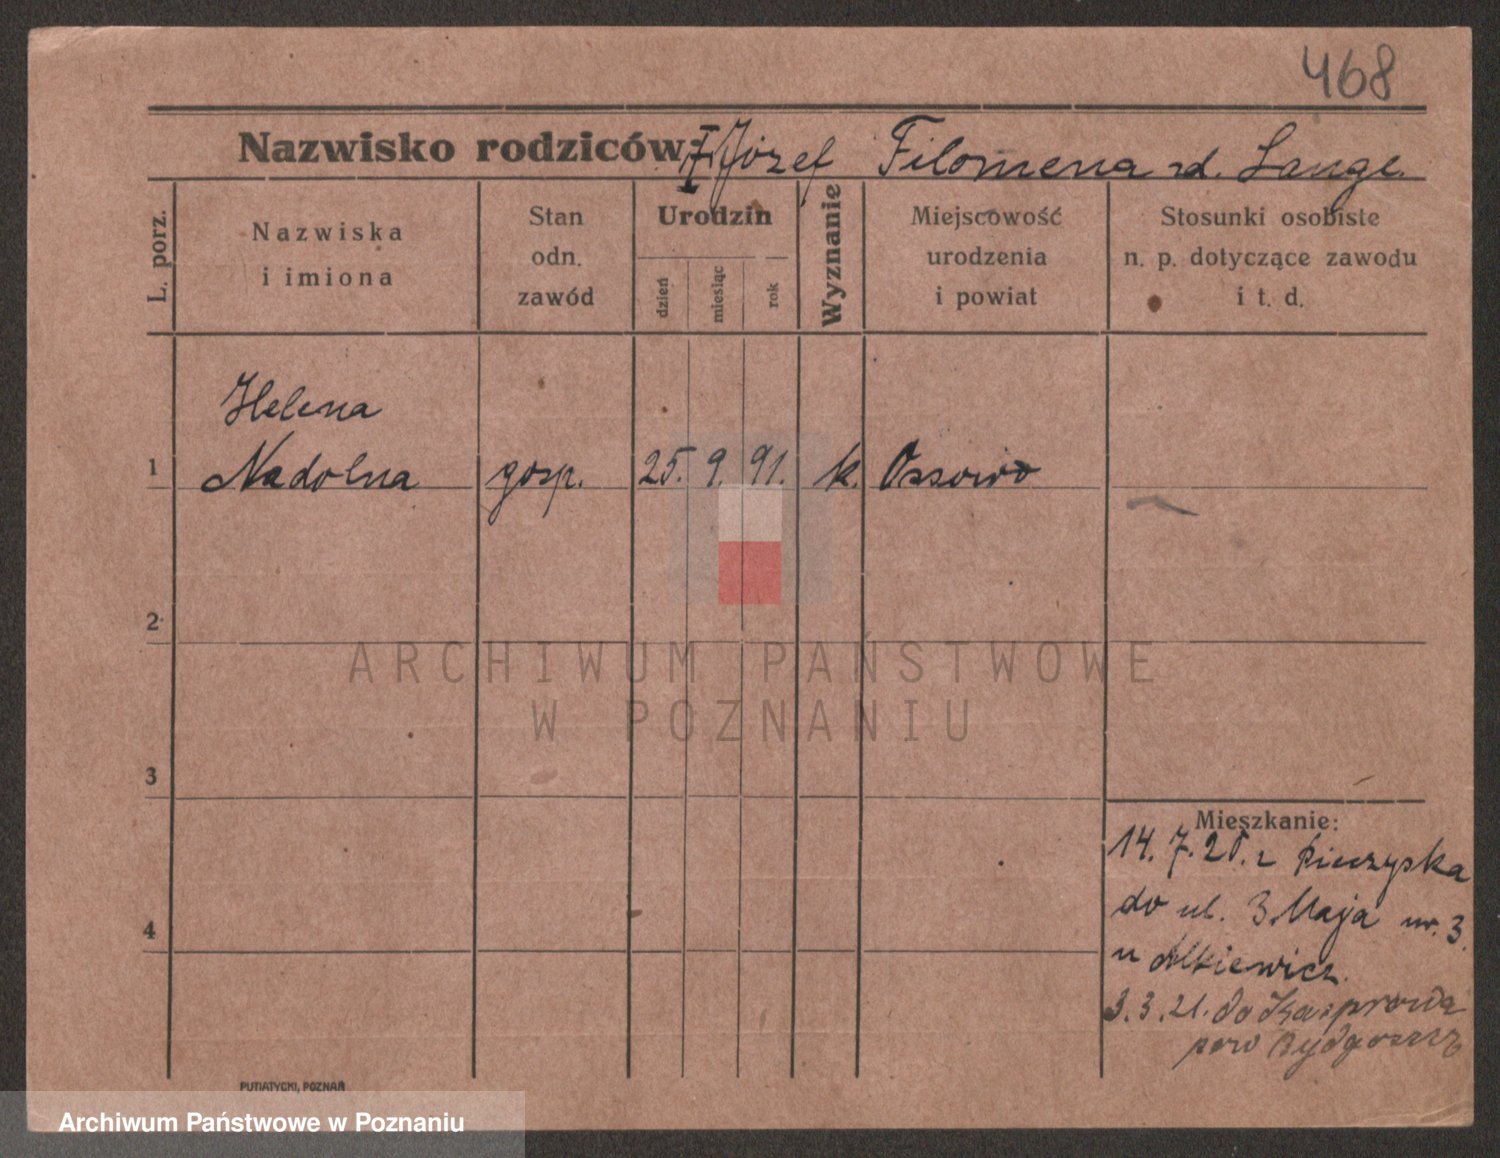 468
Nazwisko rodziców: Józef Filomena zd. Lange.
L. porz.
Nazwiska
i imiona
Stan
odn.
zawód
Urodzin
dzień
miesiąc
rok
Wyznanie
Miejscowość
urodzenia
i powiat
Stosunki osobiste
n. p. dotyczące zawodu
i t. d.
Helena
1 Nadolna gosp. 25. 9. 91. k. Ossowo
2
3
4
ARCHIWUM PAŃSTWOWE
W POZNANIU
Mieszkanie:
14. 7. 20. z Pieczyska
do ul. 3 Maja nr. 3.
u Alkiewicz.
3. 3. 21. do
pow Bydgoszcz
PUTIATYCKI, POZNAŃ
Archiwum Państwowe w Poznaniu